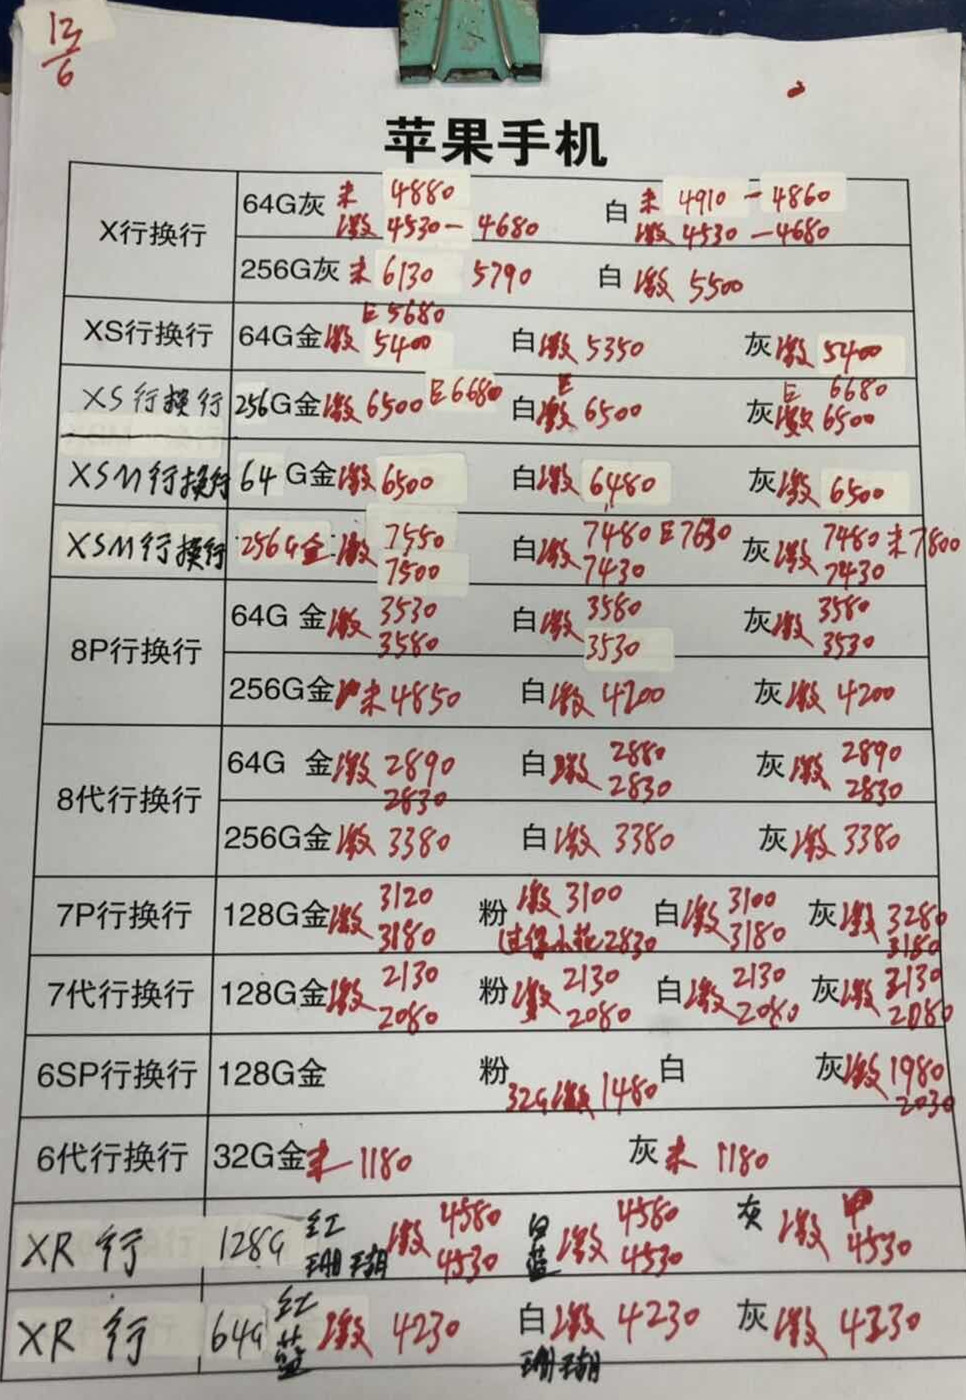 12/6
苹果手机
X行换行 64G灰 未 4880 白 未 4910 — 4860
激 4530 — 4680 激 4530 — 4680
256G灰 未 6130 5790 白 激 5500
E 5680
XS行换行 64G金 激 5400 白 激 5350 灰 激 5400
E 6680 E E 6680
XS行换行 256G金 激 6500 白 激 6500 灰 激 6500
XSM行换行 64G金 激 6500 白 激 6480 灰 激 6500
XSM行换行 256G金 激 7550 白 激 7480 E7630 灰 激 7480 未7800
7500 7430 7430
8P行换行 64G 金 激 3530 白 激 3580 灰 激 3580
3580 3530 3530
256G金 未 4850 白 激 4200 灰 激 4200
8代行换行 64G 金 激 2890 白 激 2880 灰 激 2890
2830 2830 2830
256G金 激 3380 白 激 3380 灰 激 3380
7P行换行 128G金 激 3120 粉 激 3100 白 激 3100 灰 激 3280
3180 过保小花2830 3180 3180
7代行换行 128G金 激 2130 粉 激 2130 白 激 2130 灰 激 2130
2080 2080 2080 2080
6SP行换行 128G金 粉 白 灰 激 1980
32G 激 1480 2030
6代行换行 32G金 未 1180 灰 未 1180
XR 行 128G 红 激 4580 白 激 4580 灰 激
珊瑚 4530 蓝 4530 4530
XR 行 64G 红 激 4230 白 激 4230 灰 激
蓝 珊瑚